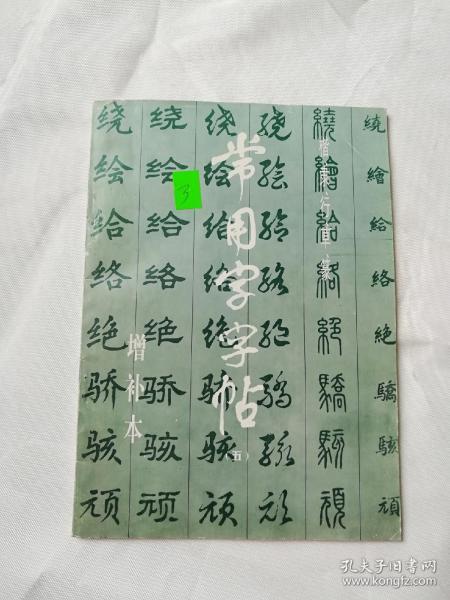 常用字字帖
(五)
楷隶行草篆
增补本
3
绕 绕 绕 绕 繞 繞
绘 绘 绘 绘 繪 繪
给 给 给 给 給 給
络 络 络 络 絡 絡
绝 绝 绝 绝 絕 絕
骄 骄 骄 驕 驕 驕
骇 骇 骇 骇 駭 駭
顽 顽 顽 顽 頑 頑
孔夫子旧书网
www.kongfz.com